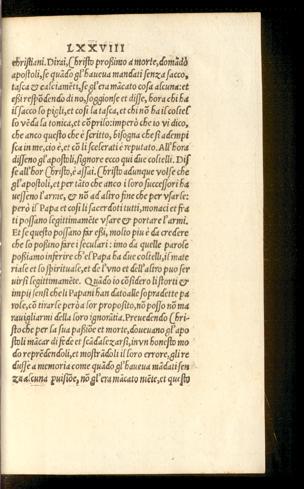 LXXVIII
christiani. Dirai, Christo proßimo a morte, domādò
apostoli, se quādo gl'haueua mandati senza sacco,
tasca & calciamēti, se gl'era mācato cosa alcuna: et
eßi respōdendo di no, soggionse et disse, hora chi ha
il sacco lo pigli, et cosi la tasca, et chi nō ha il coltel
lo vēda la tonica, et cōprilo: imperò che io vi dico,
che anco questo che è scritto, bisogna che si adempi
sca in me, cio è, et cō li scelerati è reputato. All'hora
dißeno gl'apostoli, signore ecco qui due coltelli. Dis
se all'hor Christo, è aßai. Christo adunque volse che
gl'apostoli, et per tāto che anco i loro successori ha
uesseno l'arme, & nō ad altro fine che per vsarle:
però il Papa et cosi li sacerdoti tutti, monaci et fra
ti possano legittimamēte vsare & portare l'armi.
Et se questo possano far eßi, molto piu è da credere
che lo poßino fare i seculari: imo da quelle parole
poßiamo inferire ch'el Papa ha due coltelli, il mate
riale et lo spirituale, et de l'vno et dell'altro puo ser
uirsi legittimamēte. Quādo io cōsidero li storti &
impij sensi che li Papani han dato alle sopradette pa
role, cō tirarle però a lor proposito, nō posso nō ma
rauigliarmi della loro ignorātia. Preuedendo Chri-
sto che per la sua paßiōe et morte, doueuano gl'apo
stoli mācar di fede et scādalezarsi, in vn honesto mo
do reprēdendoli, et mostrādoli il loro errore, gli re
dusse a memoria come quādo gl'haueua mādati sen
za alcuna puisiōe, nō gl'era mācato niēte, et questo